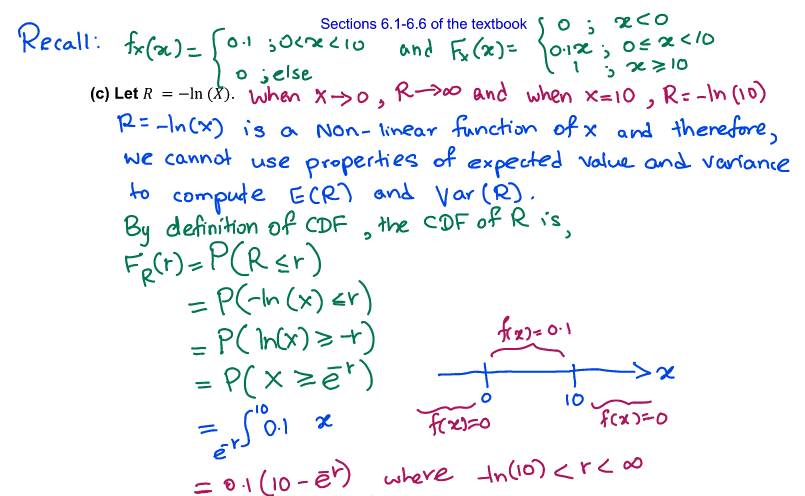 Sections 6.1-6.6 of the textbook
Recall: fx(x) = { 0.1 ; 0<x<10 and Fx(x) = { 0 ; x<0
0 ; else 0.1x ; 0≤x<10
1 ; x≥10
(c) Let R = −ln (X). When X→0, R→∞ and when x=10, R=-ln(10)
R=-ln(x) is a Non-linear function of x and therefore,
we cannot use properties of expected value and variance
to compute E(R) and Var(R).
By definition of CDF, the CDF of R is,
F_R(r) = P(R ≤ r)
= P(-ln(x) ≤ r)
= P(ln(x) ≥ -r)
f(x)=0.1
= P(X ≥ e^-r)
x
0 10
= ∫_{e^-r}^{10} 0.1 x
f(x)=0 f(x)=0
= 0.1(10 - e^-r) where -ln(10) < r < ∞